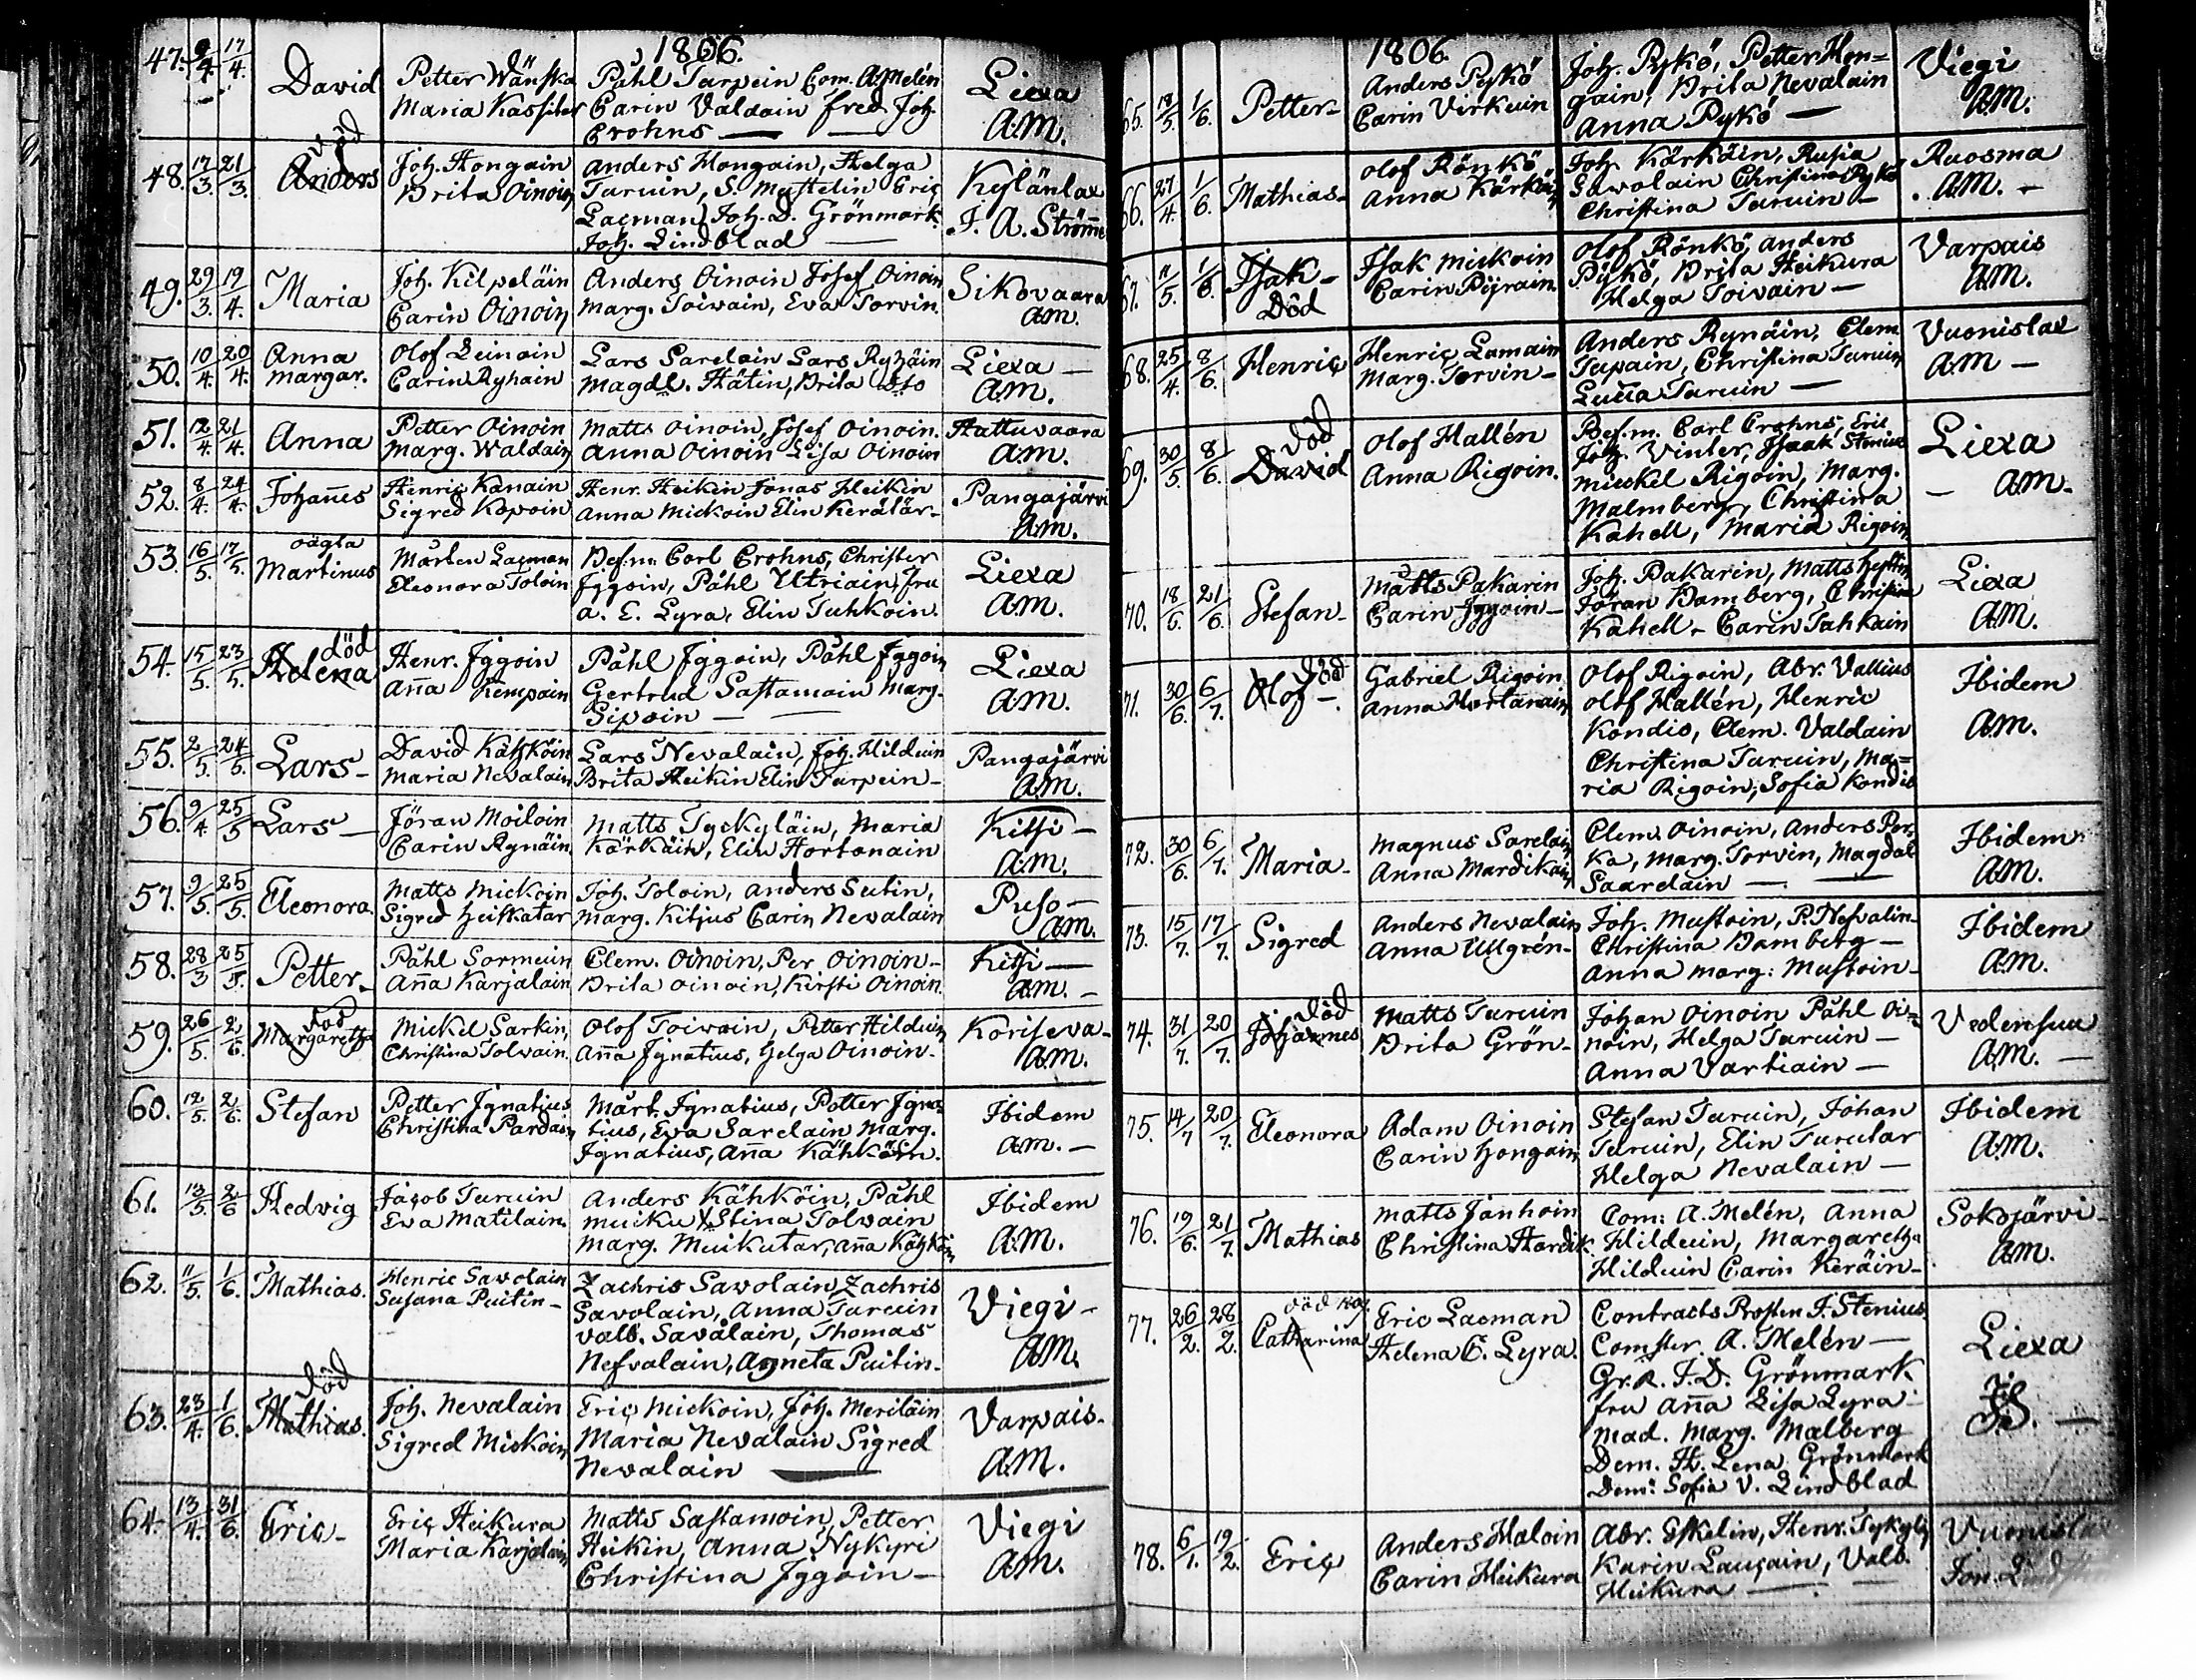 1806.
47. 9/4. 17/4. David Petter Wänska Påhl Turpein Com. A. Melén Liexa
Maria Kassilas Carin Valdain fred. Joh. A.M.
Crohns —
död
48. 17/3 21/3. Anders Joh. Hongain Anders Hongain, Helga Kylänlax
Brita Oinoin Turuin, S. Mustelin Eric J. A. Ström
Lagman, Joh. D. Grönmark
Joh. Lindblad —
49. 29/3. 19/4. Maria Joh. Kilpeläin Anders Oinoin Josef Oinoin Sikovaara
Carin Oinoin Marg. Toiwain, Eva Torvin. A.M.
50. 10/4. 20/4. Anna Olof Leinoin Lars Sarelain Lars Ryhäin Liexa —
Margar. Carin Ryhäin Magdl. Hätin, Brita dto A.M.
51. 12/4. 21/4. Anna Petter Oinoin Matts Oinoin, Josef Oinoin. Hattuvaara
Marg. Waldain Anna Oinoin Lisa Oinoin A.M.
52. 8/4. 24/4. Johañes Henric Kanain Henr. Heikin Jonas Heikin Pangajärvi
Segred Kopoin Anna Mickoin Elin Kerätär — A.M.
oägta
53. 16/5. 17/5. Martinus Mårten Lagman Bef.m. Carl Crohns, Christer Liexa
Eleonora Toloin Iggoin, Påhl Utriain, Fru A.M.
A. E. Lyra, Elin Tuhkoin.
död
54. 15/5. 23/5. Helena Henr. Iggoin Påhl Iggoin, Påhl Iggoin Liexa
Aña Kempain Gertrud Sastamoin Marg. A.M.
Sipoin —
55. 2/5. 24/5. Lars — David Kähköin Lars Nevalain, Joh. Hilduin Pangajärvi
Maria Nevalain Brita Heikin Elin Turpein — A.M.
56. 9/4. 25/5 Lars — Jöran Moiloin Matts Tyckyläin, Maria Kitsi —
Carin Rynäin Kärkäin, Elin Hortanain A.M.
57. 9/5. 25/5. Eleonora. Matts Mickoin Joh. Toloin, Anders Sutin, Puso —
Sigred Heiskatar Marg. Kitjus Carin Nevalain A.M.
58. 28/3 25/5. Petter — Påhl Sormuin Clem. Oinoin, Per Oinoin — Kitsi —
Aña Karjalain Brita Oinoin, Kirsti Oinoin. A.M. —
död
59. 26/5. 2/6. Margaretha Mickel Sarkin, Olof Toiwain, Petter Hilduin Koriseva —
Christina Tolvain. Aña Ignatius, Helga Oinoin — A.M.
60. 12/5. 2/6. Stefan Petter Ignatius Mårt. Ignatius, Petter Igna- Ibidem
Christina Pardain tius, Eva Sarelain Marg. A.M. —
Ignatius, Aña Kähköin.
61. 13/5. 2/6 Hedvig Jacob Turuin Anders Kähköin, Påhl Ibidem
Eva Matilain. Muikku, Stina Tolvain A.M.
Marg. Muikutar, Aña Kähköin
62. 11/5. 1/6. Mathias. Henric Savolain Zachris Savolain, Zachris Viegi —
Susana Puitin — Savolain, Anna Turuin A.M.
Valb. Savolain, Thomas
Nefvalain, Agneta Puitin.
död
63. 23/4. 1/6. Mathias. Joh. Nevalain Eric Mickoin, Joh. Meriläin Varpais —
Sigred Mickoin Maria Nevalain Sigred A.M.
Nevalain —
64. 13/4. 31/6. Eric — Eric Heikura Matts Sastamoin, Petter Viegi
Maria Karjalain Heikin, Anna Nykyri A.M.
Christina Iggoin —
1806.
65. 18/5. 1/6. Petter — Anders Pykö Joh. Pykö, Petter Hon= Viegi
Carin Virkuin gain, Brita Nevalain A.M.
Anna Pykö —
66. 27/4. 1/6. Mathias — Olof Rönkö Joh. Kärkäin, Rusia Ruosma
Anna Kärkäin Savolain Christina Pykö A.M. —
Christina Turuin —
67. 11/5. 1/6. Isak — Isak Mickoin Olof Rönkö, Anders Varpais
Död Carin Pijrain Pykö, Brita Heikura A.M.
Helga Toivain —
68. 25/4. 8/6. Henric Henric Lamain Anders Rynäin, Clem Vuonislax
Marg. Torvin — Tapain, Christina Turuin A.M —
Luña Turuin —
död
69. 30/5. 8/6. David Olof Hallén Bef.m. Carl Crohns, Eric Liexa
Anna Rigoin. Joh. Vinter, Isaak Stenius — A.M.
Mickel Rigoin, Marg.
Malmberg, Christina
Kahell, Maria Rigoin
70. 18/6. 21/6. Stefan — Matts Pakarin Joh. Pakarin, Matts Hyttin Liexa
Carin Iggoin — Jöran Bamberg, Christina A.M.
Kahell — Carin Tahkain
död
71. 30/6. 6/7. Olof — Gabriel Rigoin Olof Rigoin, Abr. Vallius Ibidem
Anna Hortanain Olof Hallén, Henric A.M.
Kondio, Clem. Valdain
Christina Turuin, Ma=
ria Rigoin, Sofia Kondio
72. 30/6. 6/7. Maria — Magnus Sarelain Clem. Oinoin, Anders Por- Ibidem
Anna Mardikain ka, Marg. Torvin, Magdal A.M.
Saarelain —
73. 15/7. 17/7. Sigred Anders Nevalain Joh. Mustoin, P. Nefvalin — Ibidem
Anna Ullgren — Christina Bamberg — A.M.
Anna Marg: Mustoin —
död
74. 31/7. 20/7. Johannes Matts Turuin Johan Oinoin Påhl Oi= Vedensuu
Brita Grön — noin, Helga Turuin — A.M. —
Anna Vartiain —
75. 14/7 20/7. Eleonora Adam Oinoin Stefan Turuin, Johan Ibidem
Carin Hongain Turuin, Elin Turutar A.M.
Helga Nevalain —
76. 19/6. 21/7. Mathias Matts Janhoin Com: A. Melén, Anna Sokojärvi —
Christina Hardik. Hilduin, Margaretha A.M.
Hilduin Carin Keräin —
död
77. 26/2. 28/2. Catharina Eric Lagman Contracts Prosten J. Stenius Liexa
Helena C. Lyra. Comster. A. Melén — JS. —
Gr. R. J. D. Grönmark
Fru Aña Lisa Lyra —
Mad. Marg. Malberg
Dem. H. Lena Grönmark
Dem: Sofia V. Lindblad
78. 6/1. 19/2. Eric Anders Haloin Abr. Eskelin, Henr. Tykyläin Vuonislax
Carin Heikura Karin Laucain, Valb. Jon.
Heikura —